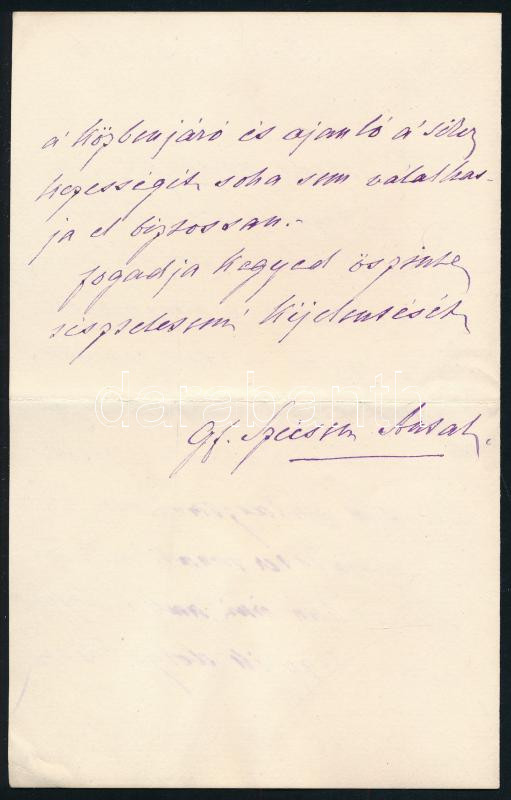 á közbenjáró és ajanló á siker
kezességét soha sem válalhas-
ja el biztossan.-
fogadja kegyed öszinte
tiszteletem' kijelentését
Gf. Szécsen Antal.
darabanth